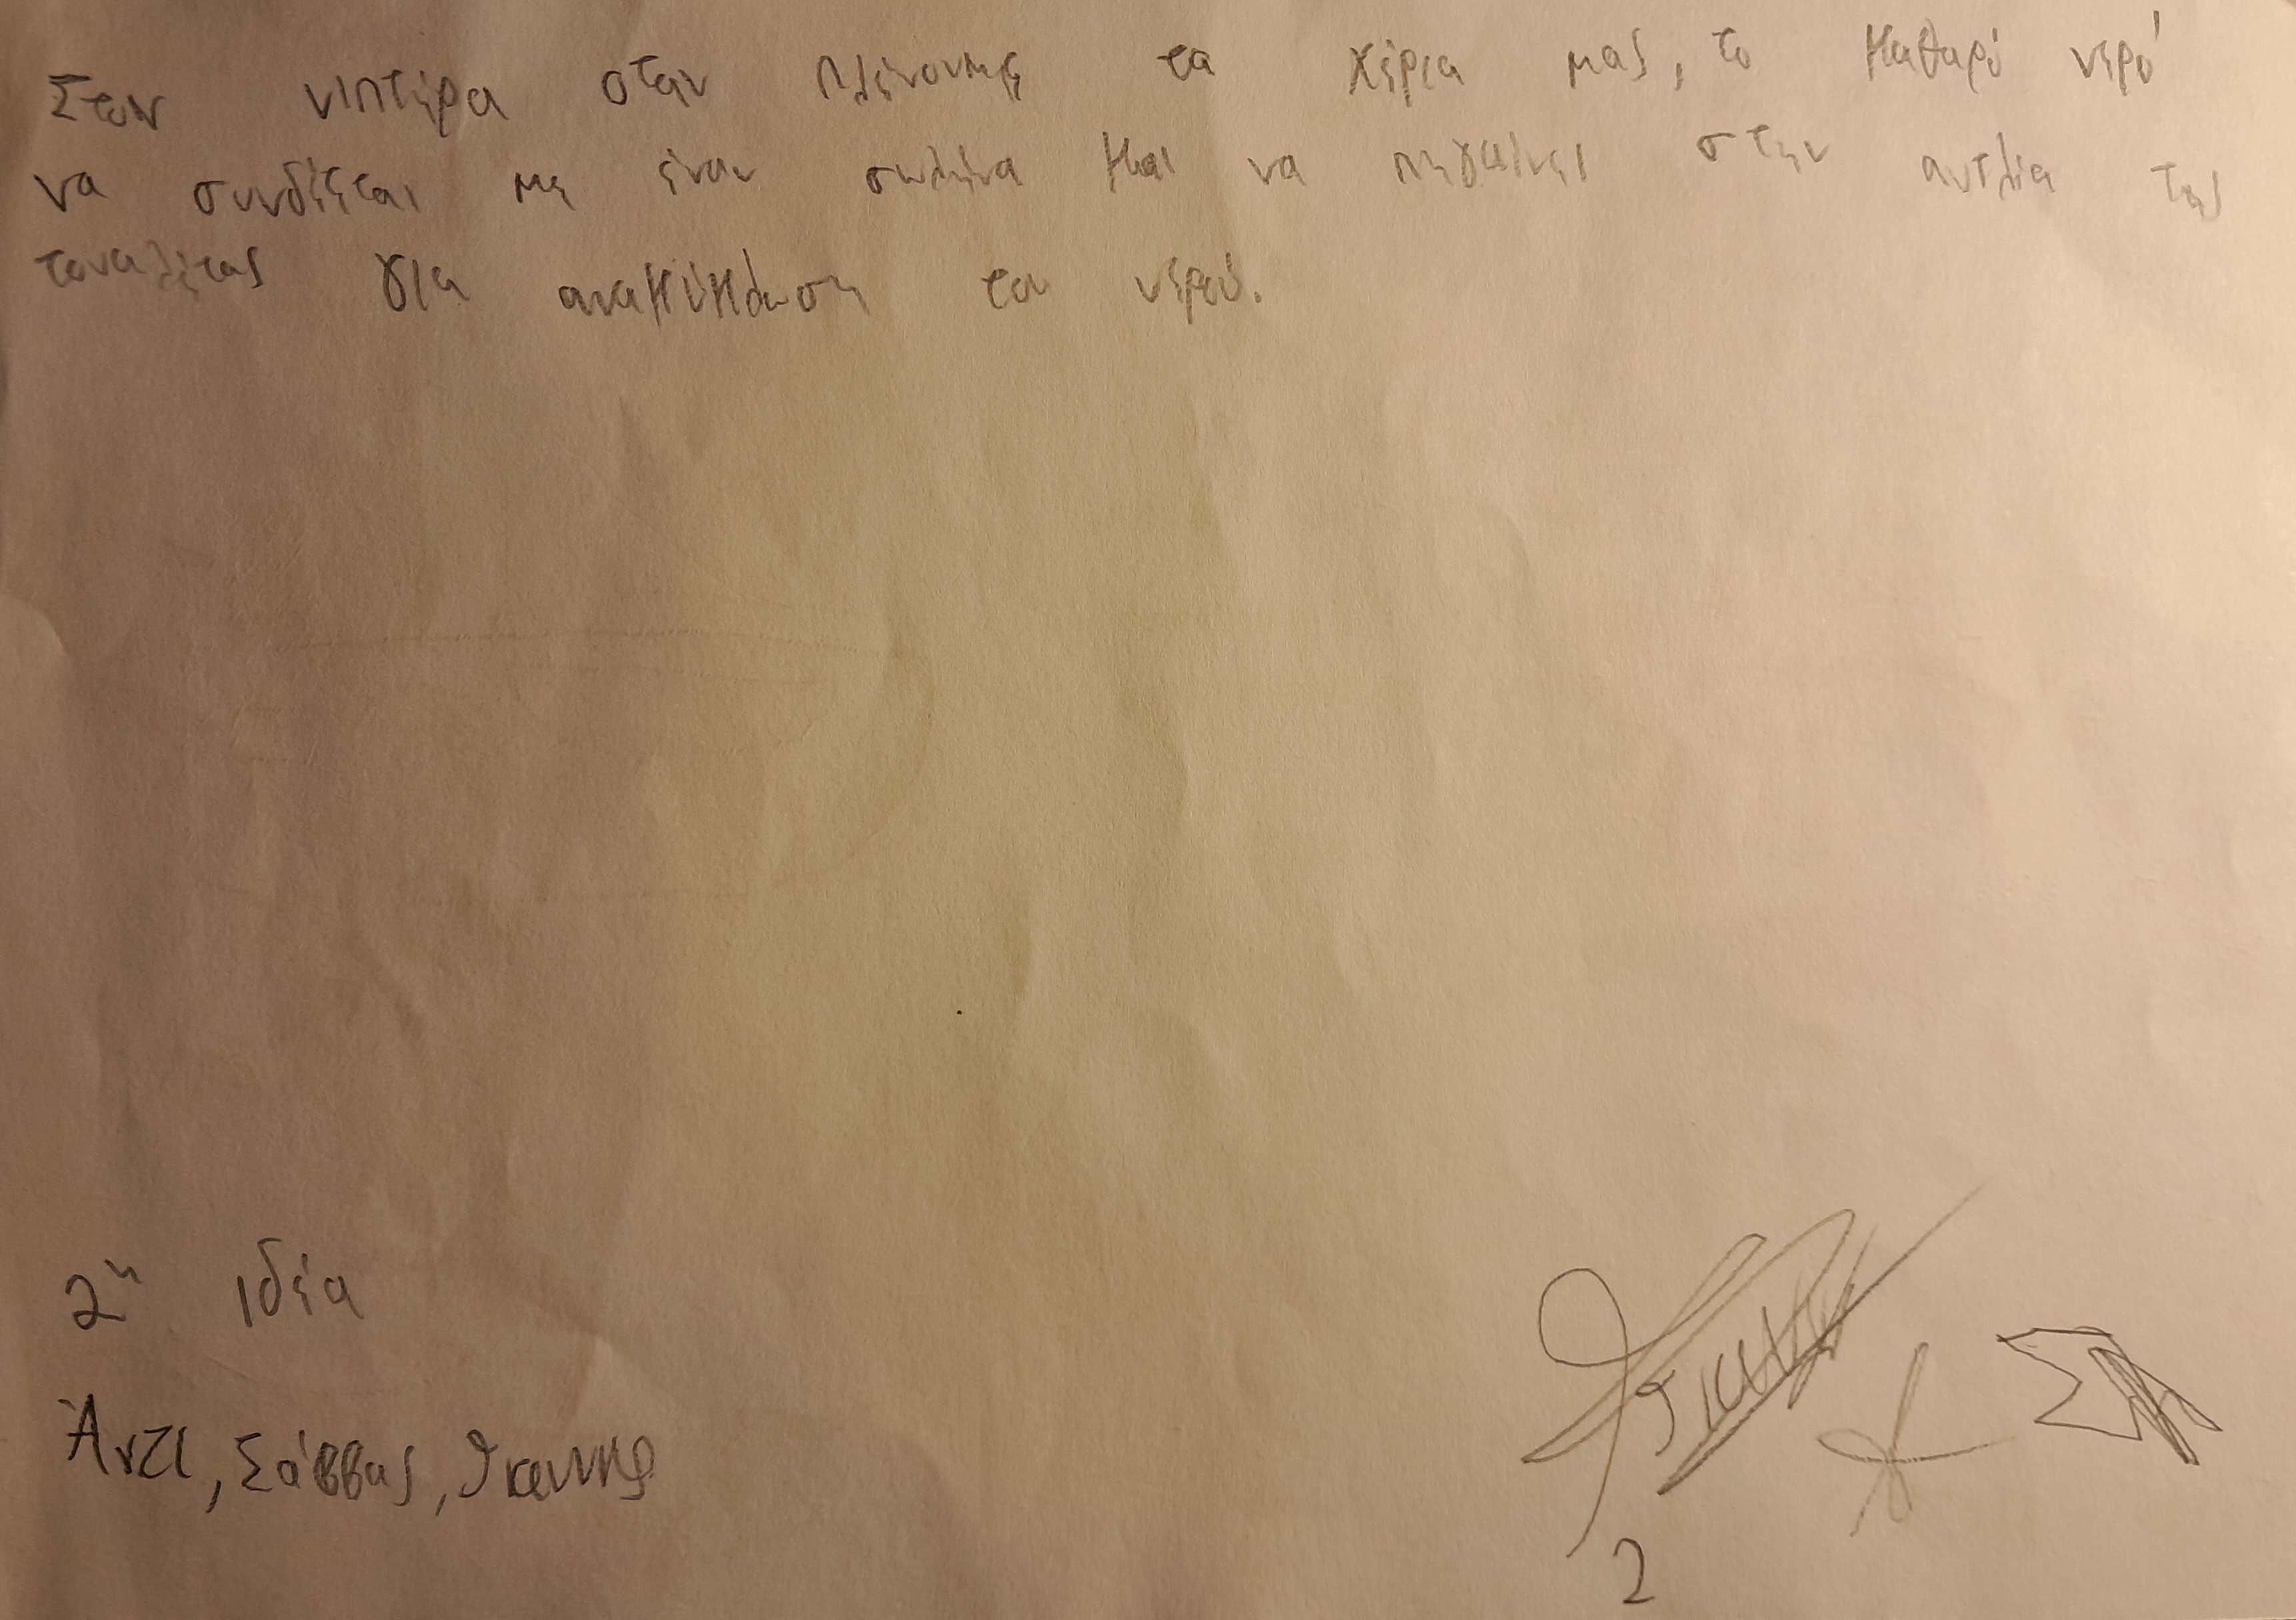 Στον νιπτήρα όταν πλένουμε τα χέρια μας, το καθαρό νερό
να συνδέεται με έναν σωλήνα και να πηγαίνει στην αντλία της
τουαλέτας για ανακύκλωση του νερού.
2η ιδέα
Άντι, Σάββας, Γιάννης
2